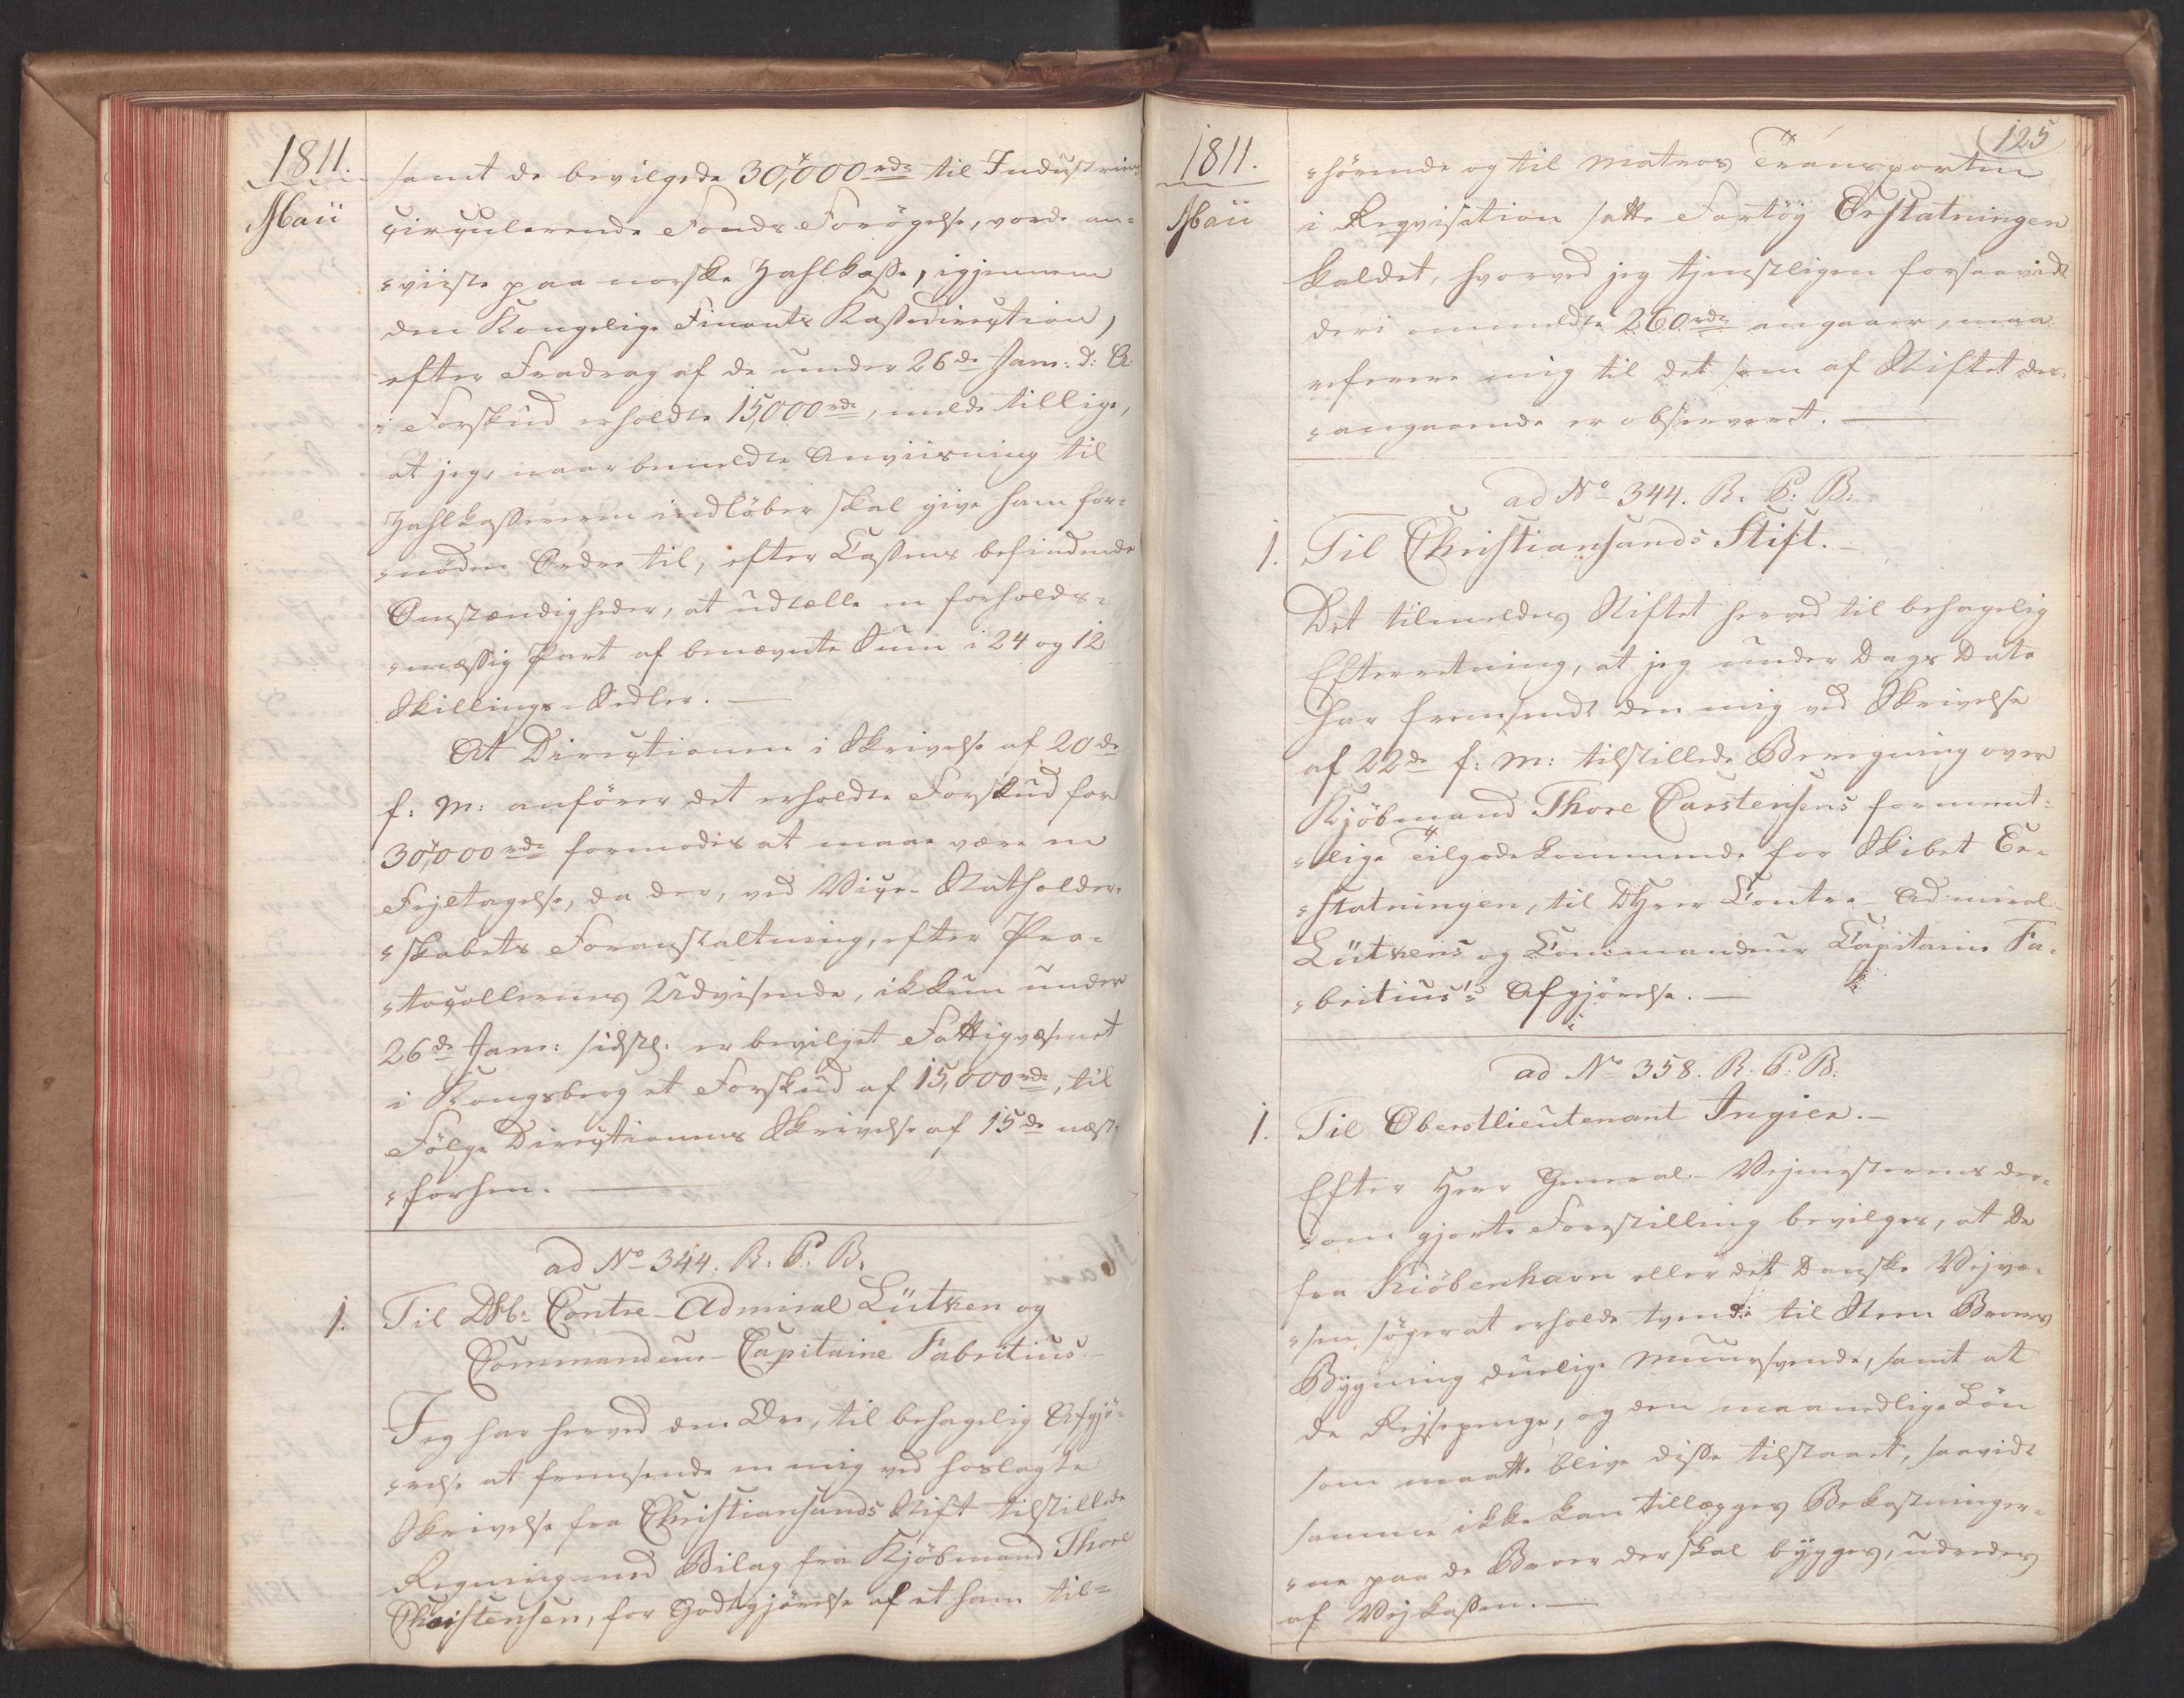 1811.
Maii
samt de bevilgede 30,000 rdr til Industriens
circulerende Fonds Forögelse, vorde an=
=viiste paa norske Zahlkasse, igjennem
den Kongelige Finants Kassedirection,
efter Fradrag af de under 26de Jan: d: A:
i Forskud erholdte 15,000 rdr, melde tillige,
at jeg, naar bemeldte Anviisning til
Zahlkasserem indlöber skal give ham for=
=nöden Ordre til, efter Cassens befindende
Omstændigheder, at udtælle en forholds=
=mæssig Part af benævnte Sum i 24 og 12
Skillings-Sedler. —
At Directionen i Skrivelse af 20de
f: M: anförer det erholdte Forskud for
30,000 rdr formodes at maae være en
Fejltagelse, da der, ved Vice-Statholder=
=skabets Foranstaltning, efter Pro=
=tocollernes Udvisende, ikkun under
26de Jan: sidstl: er bevilget Fattigvæsenet
i Kongsberg et Forskud af 15,000 rdr, til
Fölge Directionens Skrivelse af 15de næst=
=forhen. —
ad No 344. R: P: B:
1. Til DHb: Contre-Admiral Lütken og
Commandeur-Capitaine Fabritius
Jeg har herved den Ære, til behagelig Afgjö=
=relse at fremsende en mig ved hoslagte
Skrivelse fra Christiansands Stift tilstillede
Regning med Bilag fra Kjöbmand Thore
Christensen, for Godtgjörelse af et ham til=
125
1811.
Maii
=hörende og til Matros Transporten
i Reqvisition satte Fartöy Erstatningen
kaldet, hvorved jeg tjenstligen forsaavidt
deri ommeldte 260 rdr angaaer, maa
referere mig til det som af Stiftet der=
=angaaende er observeret. —
ad No 344. R. P: B:
1. Til Christiansands Stift. —
Det tilmeldes Stiftet herved til behagelig
Efterretning, at jeg under Dags Dato
har fremsendt den mig ved Skrivelse
af 22de f: M: tilstillede Beregning over
Kjöbmand Thore Carstensens forment=
=lige Tilgodekommende for Skibet Er=
=statningen, til DHerr Contre-Admiral
Lütkens og Commandeur Capitaine Fa=
=britius's Afgjörelse. —
ad No 358. R. P. B:
1. Til Oberstlieutenant Ingier. —
Efter Herr General-Vejmesterens der=
=om gjorte Forestilling bevilges, at De
fra Kiöbenhavn eller det Danske Vejvæ=
=sen söger at erholde tvende til Steen Broers
Bygning duelige Muursvende, samt at
de Rejsepenge, og den maanedlige Lön
som maatte blive disse tilstaaet, saavidt
samme ikke kan tillægges Bekostninger=
=ne paa de Broer der skal bygges, udredes
af Vejkassen. —